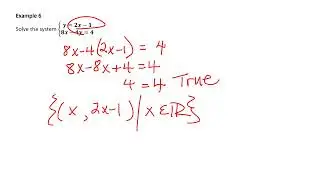 Example 6
Solve the system { y = 2x − 1
8x − 4y = 4
8x-4(2x-1) = 4
8x-8x+4=4
4 = 4 True
{(x, 2x-1) | x ∈ ℝ}